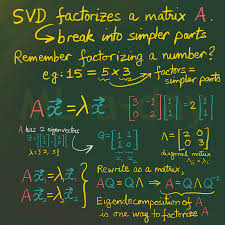 SVD factorizes a matrix A.
break into simpler parts
Remember factorizing a number?
e.g: 15 = 5 x 3 factors = simpler parts
Ax⃗ = λx⃗
A has 2 eigenvectors
λ = {2, 3}
Q = [1 1; 1 2]
Λ = [2 0; 0 3]
diagonal matrix
Ax⃗₁ = λx⃗₁
Ax⃗₂ = λx⃗₂
Rewrite as a matrix,
AQ = QΛ ⇒ A = QΛQ⁻¹
Eigendecomposition of A
is one way to factorize A